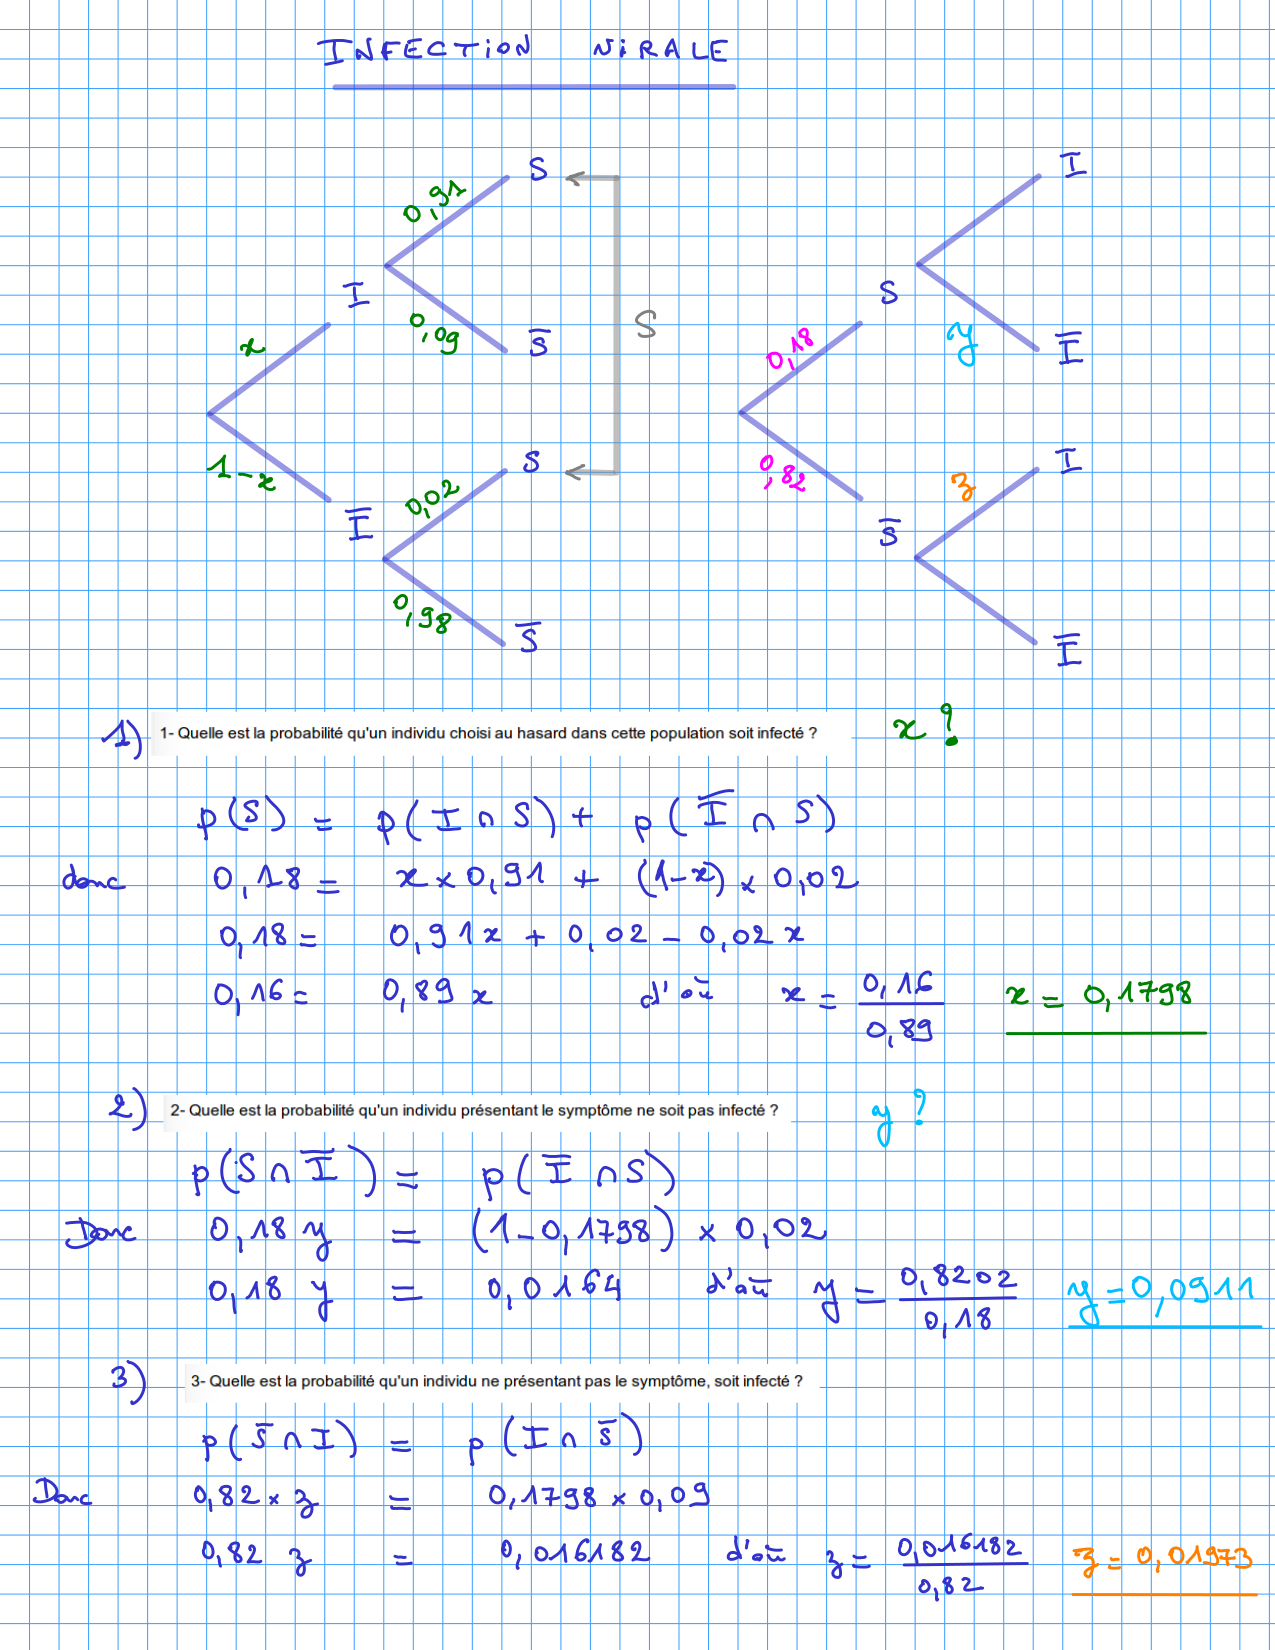 INFECTION NIRALE
0,91
S
I
I
0,09
S̅
S
x
1-x
I̅
0,02
S
0,98
S̅
S
0,18
y
I̅
0,82
S̅
z
I
I̅
1) 1- Quelle est la probabilité qu'un individu choisi au hasard dans cette population soit infecté ? x ?
p(S) = p(I∩S) + p(I̅∩S)
donc 0,18 = x×0,91 + (1-x)×0,02
0,18 = 0,91x + 0,02 - 0,02x
0,16 = 0,89x d'où x = 0,16/0,89 x = 0,1798
2) 2- Quelle est la probabilité qu'un individu présentant le symptôme ne soit pas infecté ? y ?
p(S∩I̅) = p(I̅∩S)
Donc 0,18 y = (1-0,1798)×0,02
0,18 y = 0,0164 d'où y = 0,8202/0,18 y=0,0911
3) 3- Quelle est la probabilité qu'un individu ne présentant pas le symptôme, soit infecté ?
p(S̅∩I) = p(I∩S̅)
Donc 0,82×z = 0,1798×0,09
0,82 z = 0,016182 d'où z = 0,016182/0,82 z = 0,01973